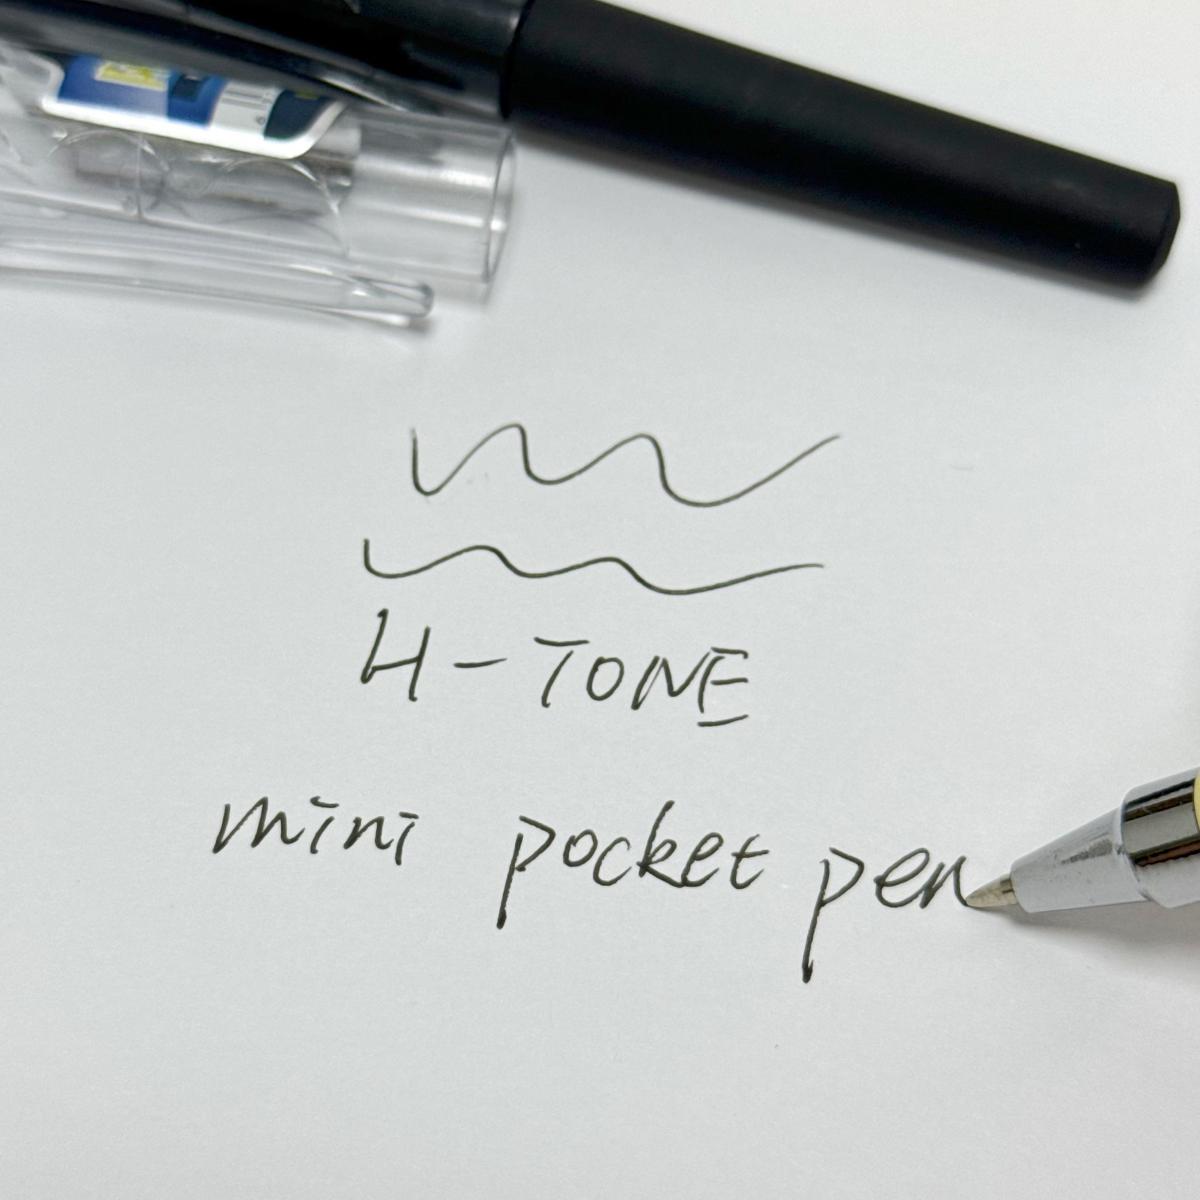 H-TONE
mini pocket pen